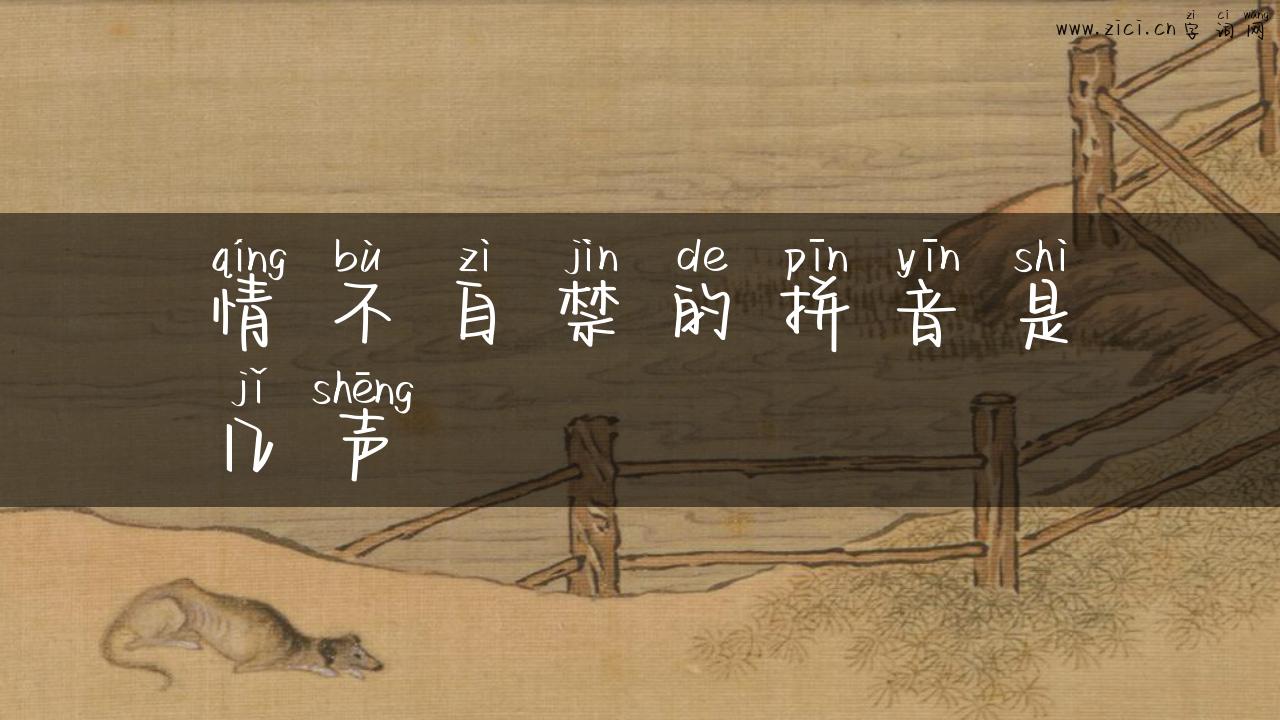 zi ci wang
www.zici.cn 字词网
qíng bù zì jìn de pīn yīn shì
情不自禁的拼音是
jǐ shēng
几声